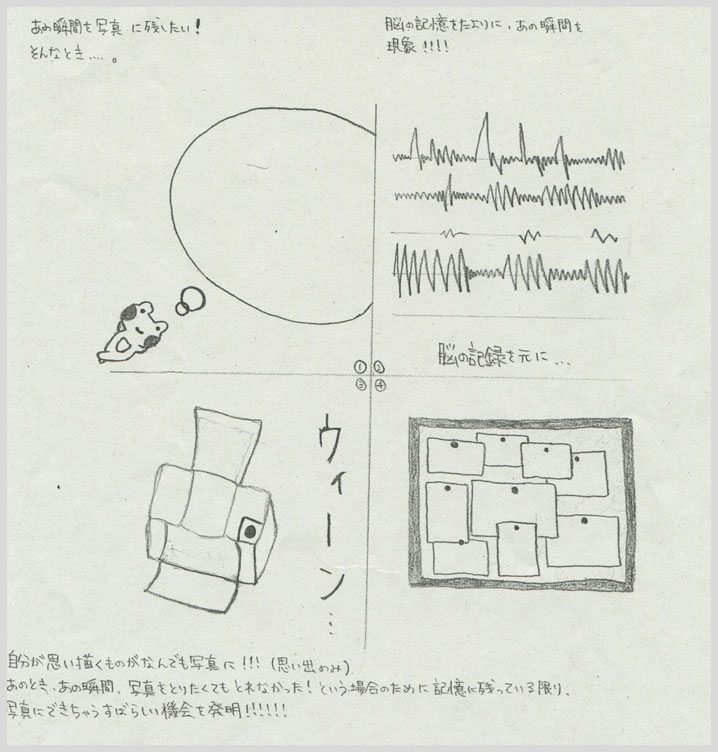 あの瞬間を写真に残したい！
そんなとき....。
脳の記憶をたよりに、あの瞬間を
現象!!!!
脳の記録を元に...
① ②
③ ④
ウィーン...
自分が思い描くものがなんでも写真に!!!(思い出のみ)
あのとき、あの瞬間、写真をとりたくてもとれなかった！という場合のために記憶に残っている限り、
写真にできちゃうすばらしい機会を発明!!!!!!